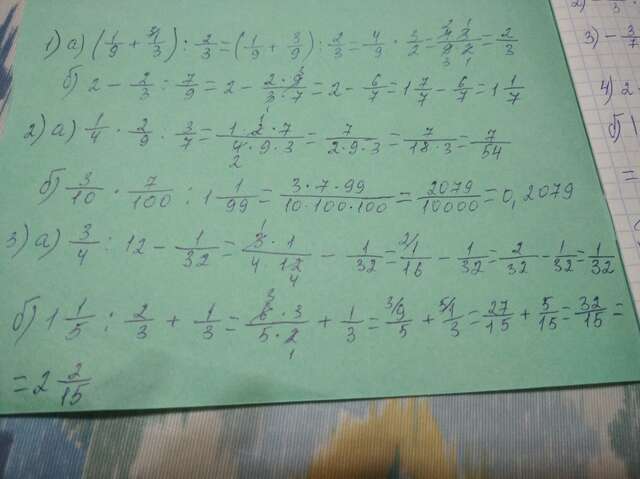 1) а) (1/9 + 3/1/3) : 2/3 = (1/9 + 3/9) : 2/3 = 4/9 · 3/2 = 4·3/9·2 = 2/3
б) 2 − 2/3 : 7/9 = 2 − 2·9/3·7 = 2 − 6/7 = 1 7/7 − 6/7 = 1 1/7
2) а) 1/4 · 2/9 : 3/7 = 1·2·7/4·9·3 = 7/2·9·3 = 7/18·3 = 7/54
б) 3/10 · 7/100 : 1 1/99 = 3·7·99/10·100·100 = 2079/10000 = 0,2079
3) а) 3/4 : 12 − 1/32 = 3·1/4·12 − 1/32 = 2/1/16 − 1/32 = 2/32 − 1/32 = 1/32
б) 1 1/5 : 2/3 + 1/3 = 6·3/5·2 + 1/3 = 3/9/5 + 5/1/3 = 27/15 + 5/15 = 32/15 =
= 2 2/15
3) − 3/7
4) 2 ·
б) 1
=